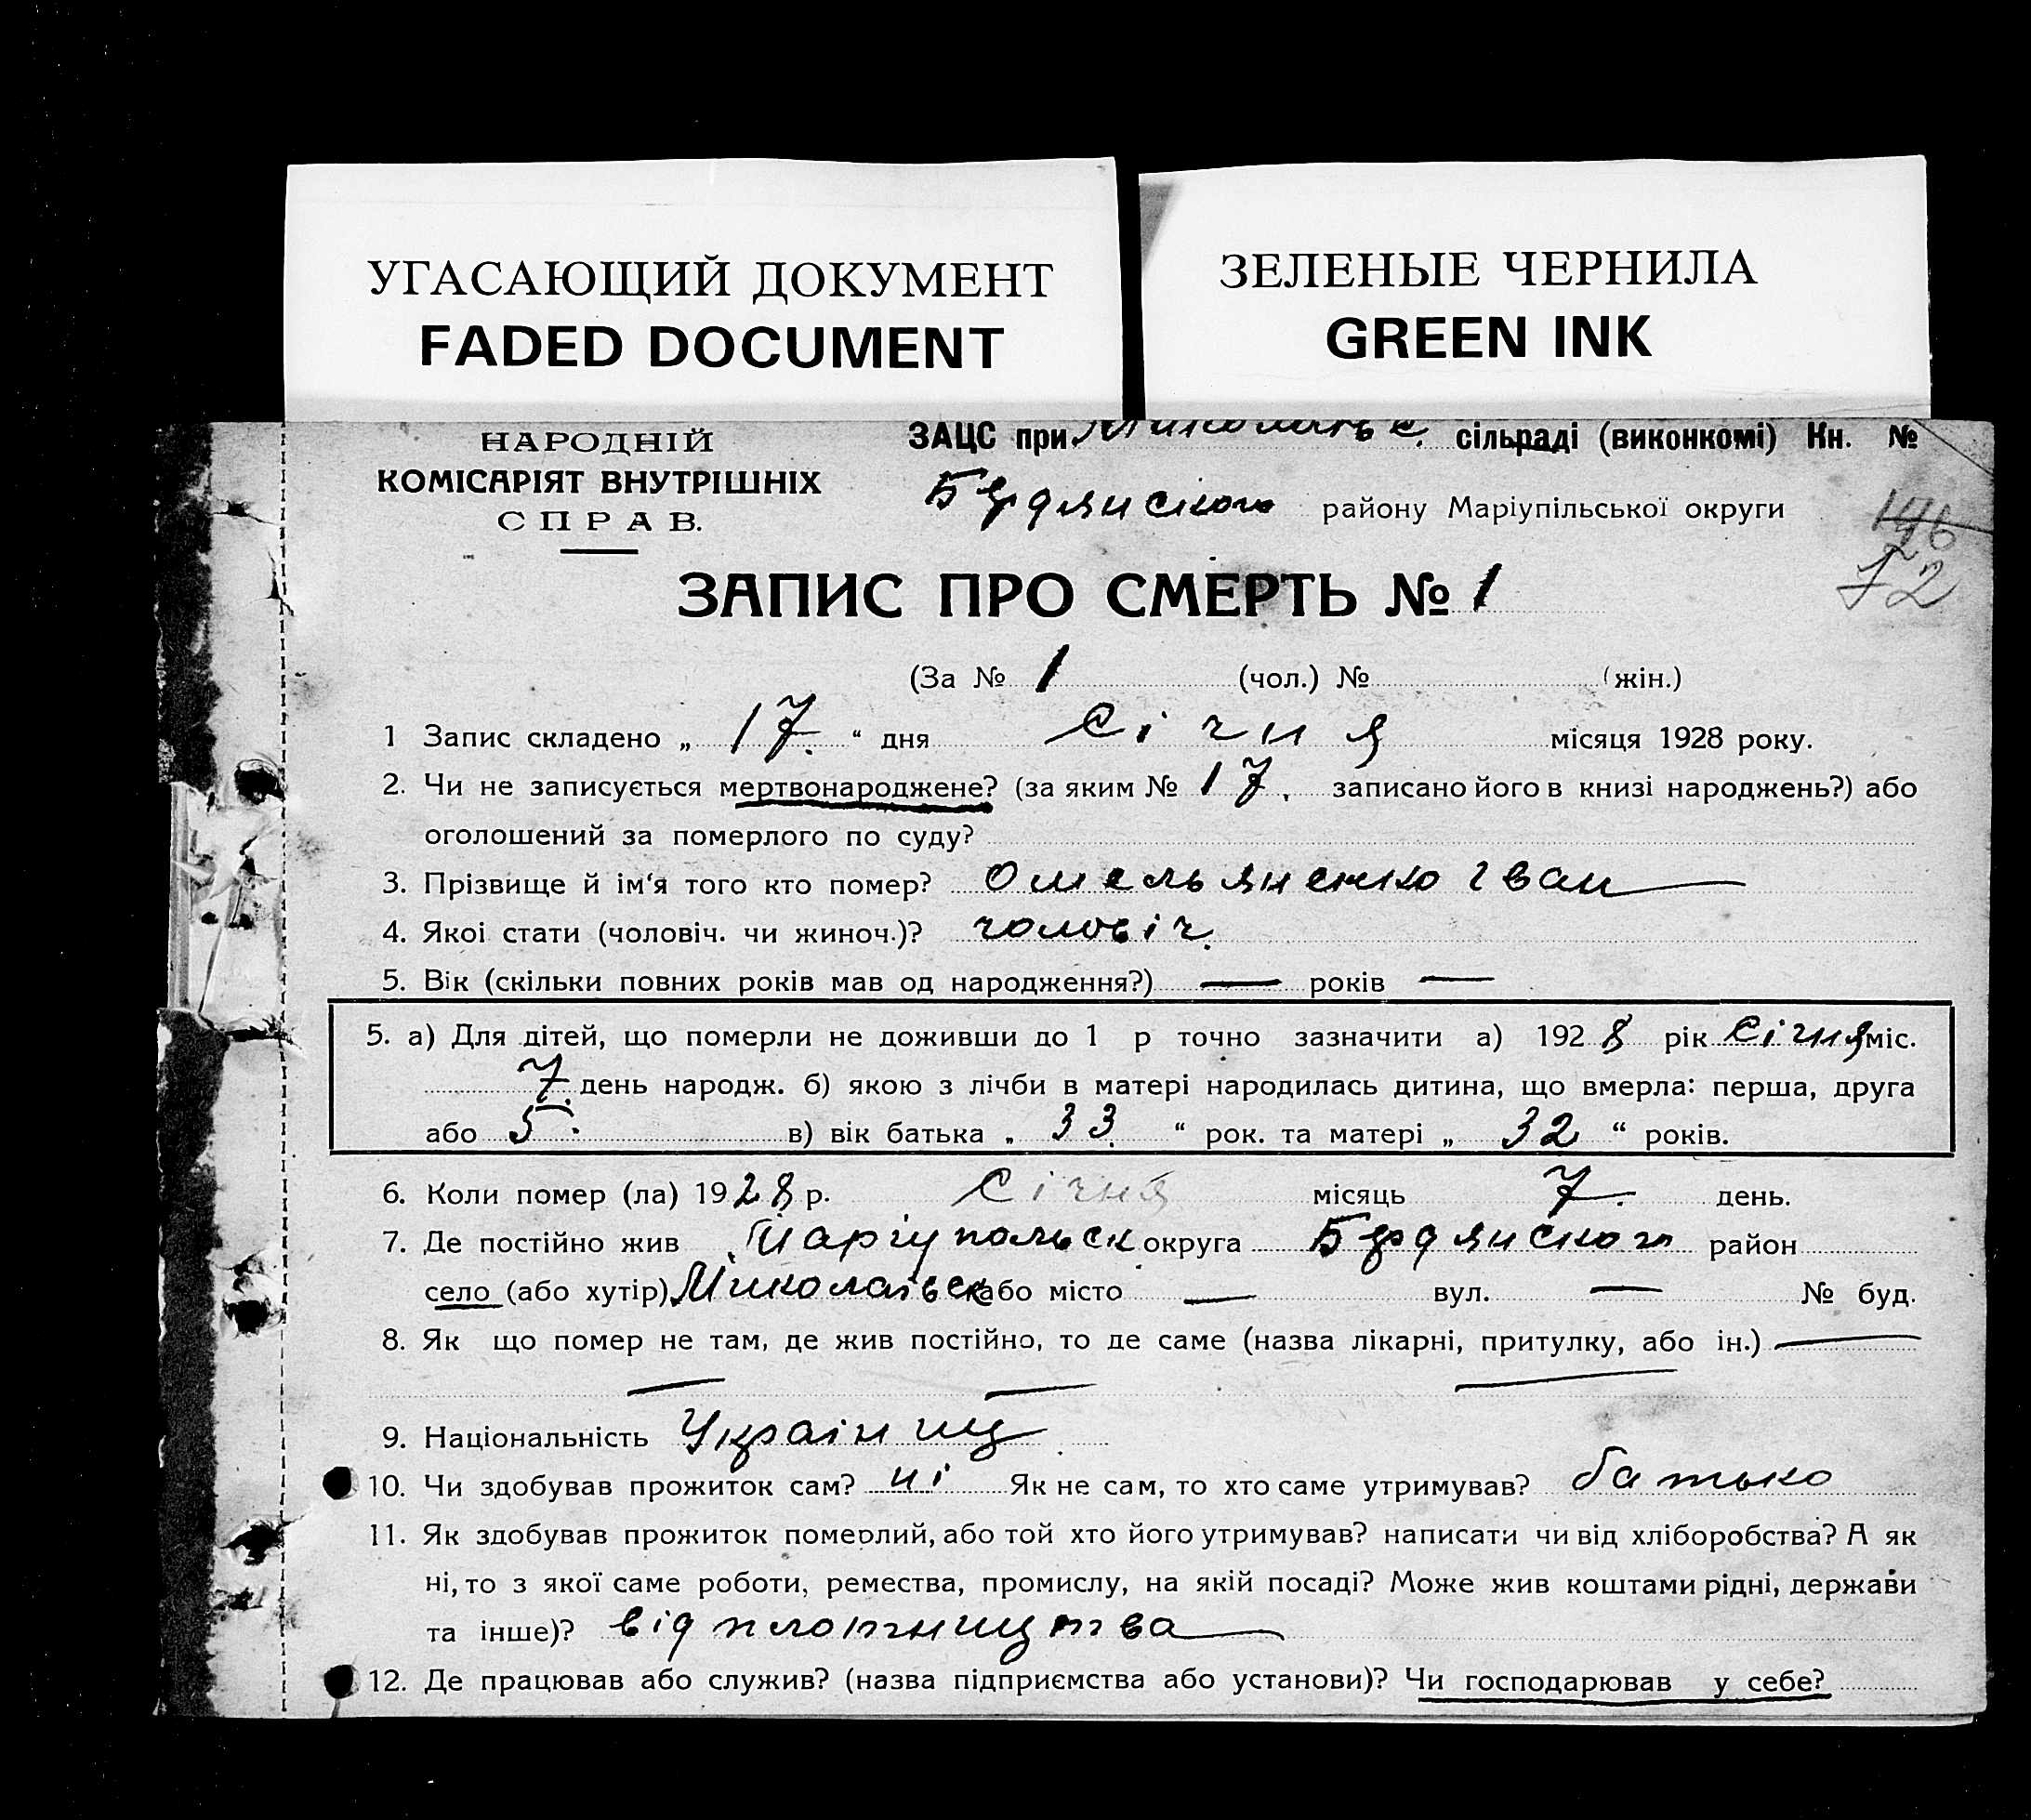 УГАСАЮЩИЙ ДОКУМЕНТ
FADED DOCUMENT
ЗЕЛЕНЫЕ ЧЕРНИЛА
GREEN INK
НАРОДНІЙ
КОМІСАРІЯТ ВНУТРІШНІХ
СПРАВ.
ЗАЦС при сільраді (виконкомі) Кн. №
Бердянського району Маріупільської округи
146
72
ЗАПИС ПРО СМЕРТЬ № 1
(За № 1 (чол.) № (жін.)
1 Запис складено „ 17. “ дня Січня місяця 1928 року.
2. Чи не записується мертвонароджене? (за яким № 17. записано його в книзі народжень?) або
оголошений за померлого по суду?
3. Прізвище й ім‘я того кто помер? Омельяненко Іван
4. Якоі стати (чоловіч. чи жиноч.)? чоловіч.
5. Вік (скільки повних років мав од народження?) — років —
5. а) Для дітей, що померли не доживши до 1 р точно зазначити а) 1928 рік Січня міс.
7. день народж. б) якою з лічби в матері народилась дитина, що вмерла: перша, друга
або 5. в) вік батька „ 33. “ рок. та матері „ 32 “ років.
6. Коли помер (ла) 1928 р. Січня місяць 7. день.
7. Де постійно жив Маріупольск округа Бердянського район
село (або хутір) Миколаївск або місто — вул. — № буд.
8. Як що помер не там, де жив постійно, то де саме (назва лікарні, притулку, або ін.) —
— — —
9. Національність Українец
10. Чи здобував прожиток сам? ні Як не сам, то хто саме утримував? батько
11. Як здобував прожиток померлий, або той хто його утримував? написати чи від хліборобства? А як
ні, то з якої саме роботи, ремества, промислу, на якій посаді? Може жив коштами рідні, держави
та інше)? від плотництва
12. Де працював або служив? (назва підприємства або установи)? Чи господарював у себе?